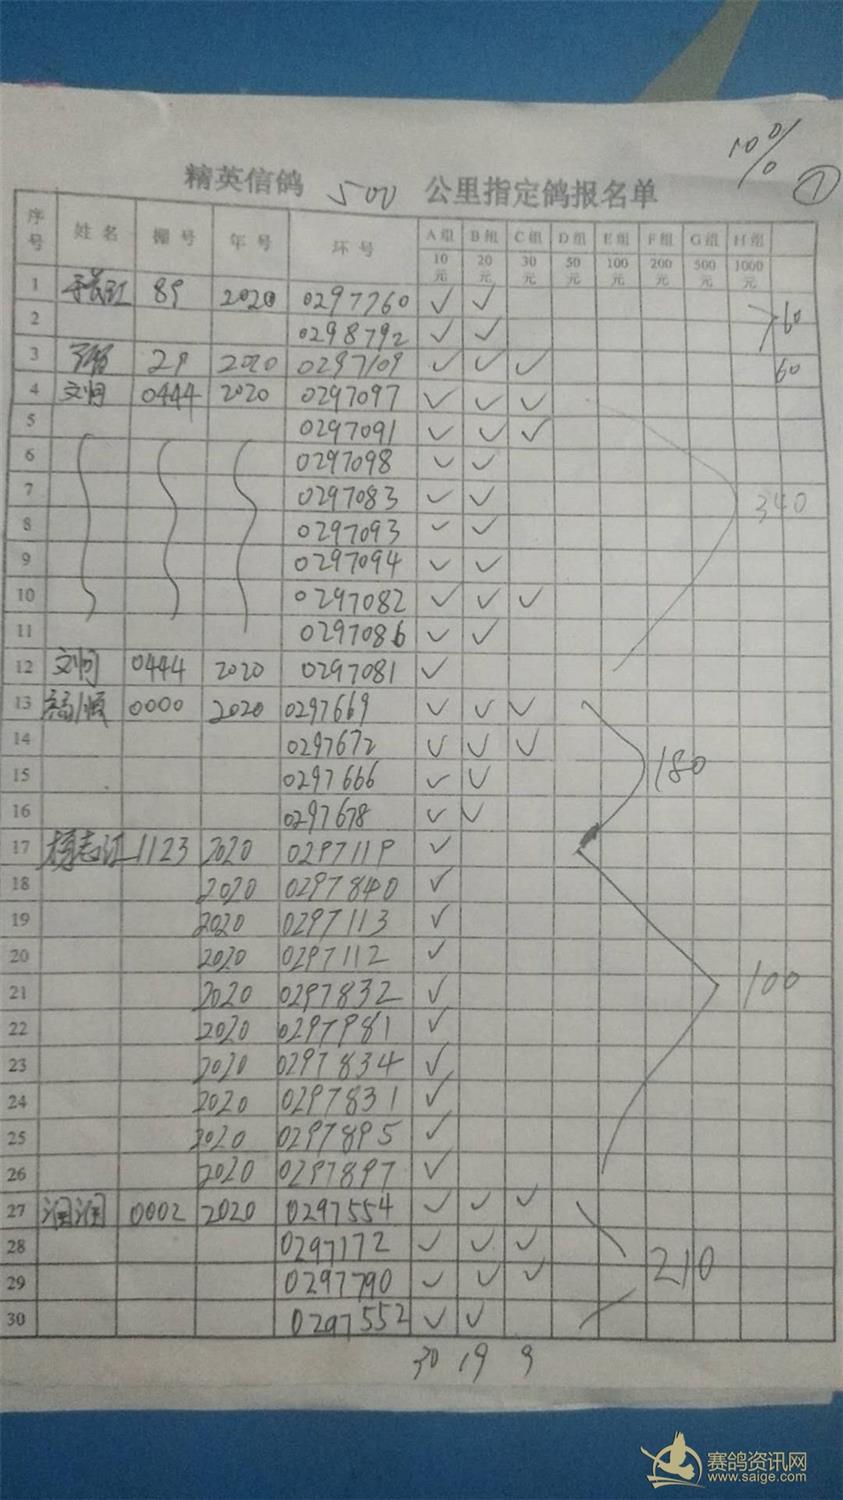 10% ①
精英信鸽 500 公里指定鸽报名单
序号 姓名 棚号 年号 环号 A组 B组 C组 D组 E组 F组 G组 H组
10元 20元 30元 50元 100元 200元 500元 1000元
1 89 2020 0297760 ✓ ✓
2 0298792 ✓ ✓ 60
3 29 2020 0297109 ✓ ✓ ✓ 60
4 0444 2020 0297097 ✓ ✓ ✓
5 0297091 ✓ ✓ ✓
6 0297098 ✓ ✓
7 0297083 ✓ ✓ 340
8 0297093 ✓ ✓
9 0297094 ✓ ✓
10 0297082 ✓ ✓ ✓
11 0297086 ✓ ✓
12 0444 2020 0297081 ✓
13 0000 2020 0297669 ✓ ✓ ✓
14 0297672 ✓ ✓ ✓
15 0297666 ✓ ✓ 180
16 0297678 ✓ ✓
17 杨志江 1123 2020 0297119 ✓
18 2020 0297840 ✓
19 2020 0297113 ✓
20 2020 0297112 ✓
21 2020 0297832 ✓ 100
22 2020 0297981 ✓
23 2020 0297834 ✓
24 2020 0297831 ✓
25 2020 0297895 ✓
26 2020 0297897 ✓
27 润润 0002 2020 0297554 ✓ ✓ ✓
28 0297172 ✓ ✓ ✓ 210
29 0297790 ✓ ✓ ✓
30 0297552 ✓ ✓
30 19 9
赛鸽资讯网
www.saige.com